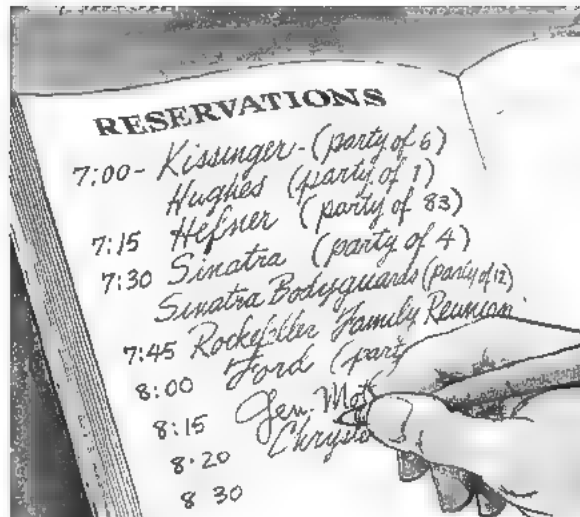 RESERVATIONS
7:00- Kissinger-(party of 6)
Hughes (party of 1)
7:15 Hefner (party of 83)
7:30 Sinatra (party of 4)
Sinatra Bodyguards (party of 12)
7:45 Rockefeller Family Reunion
8:00 Ford (party
8:15 Gen. Mot
8:20 Chrysl
8 30